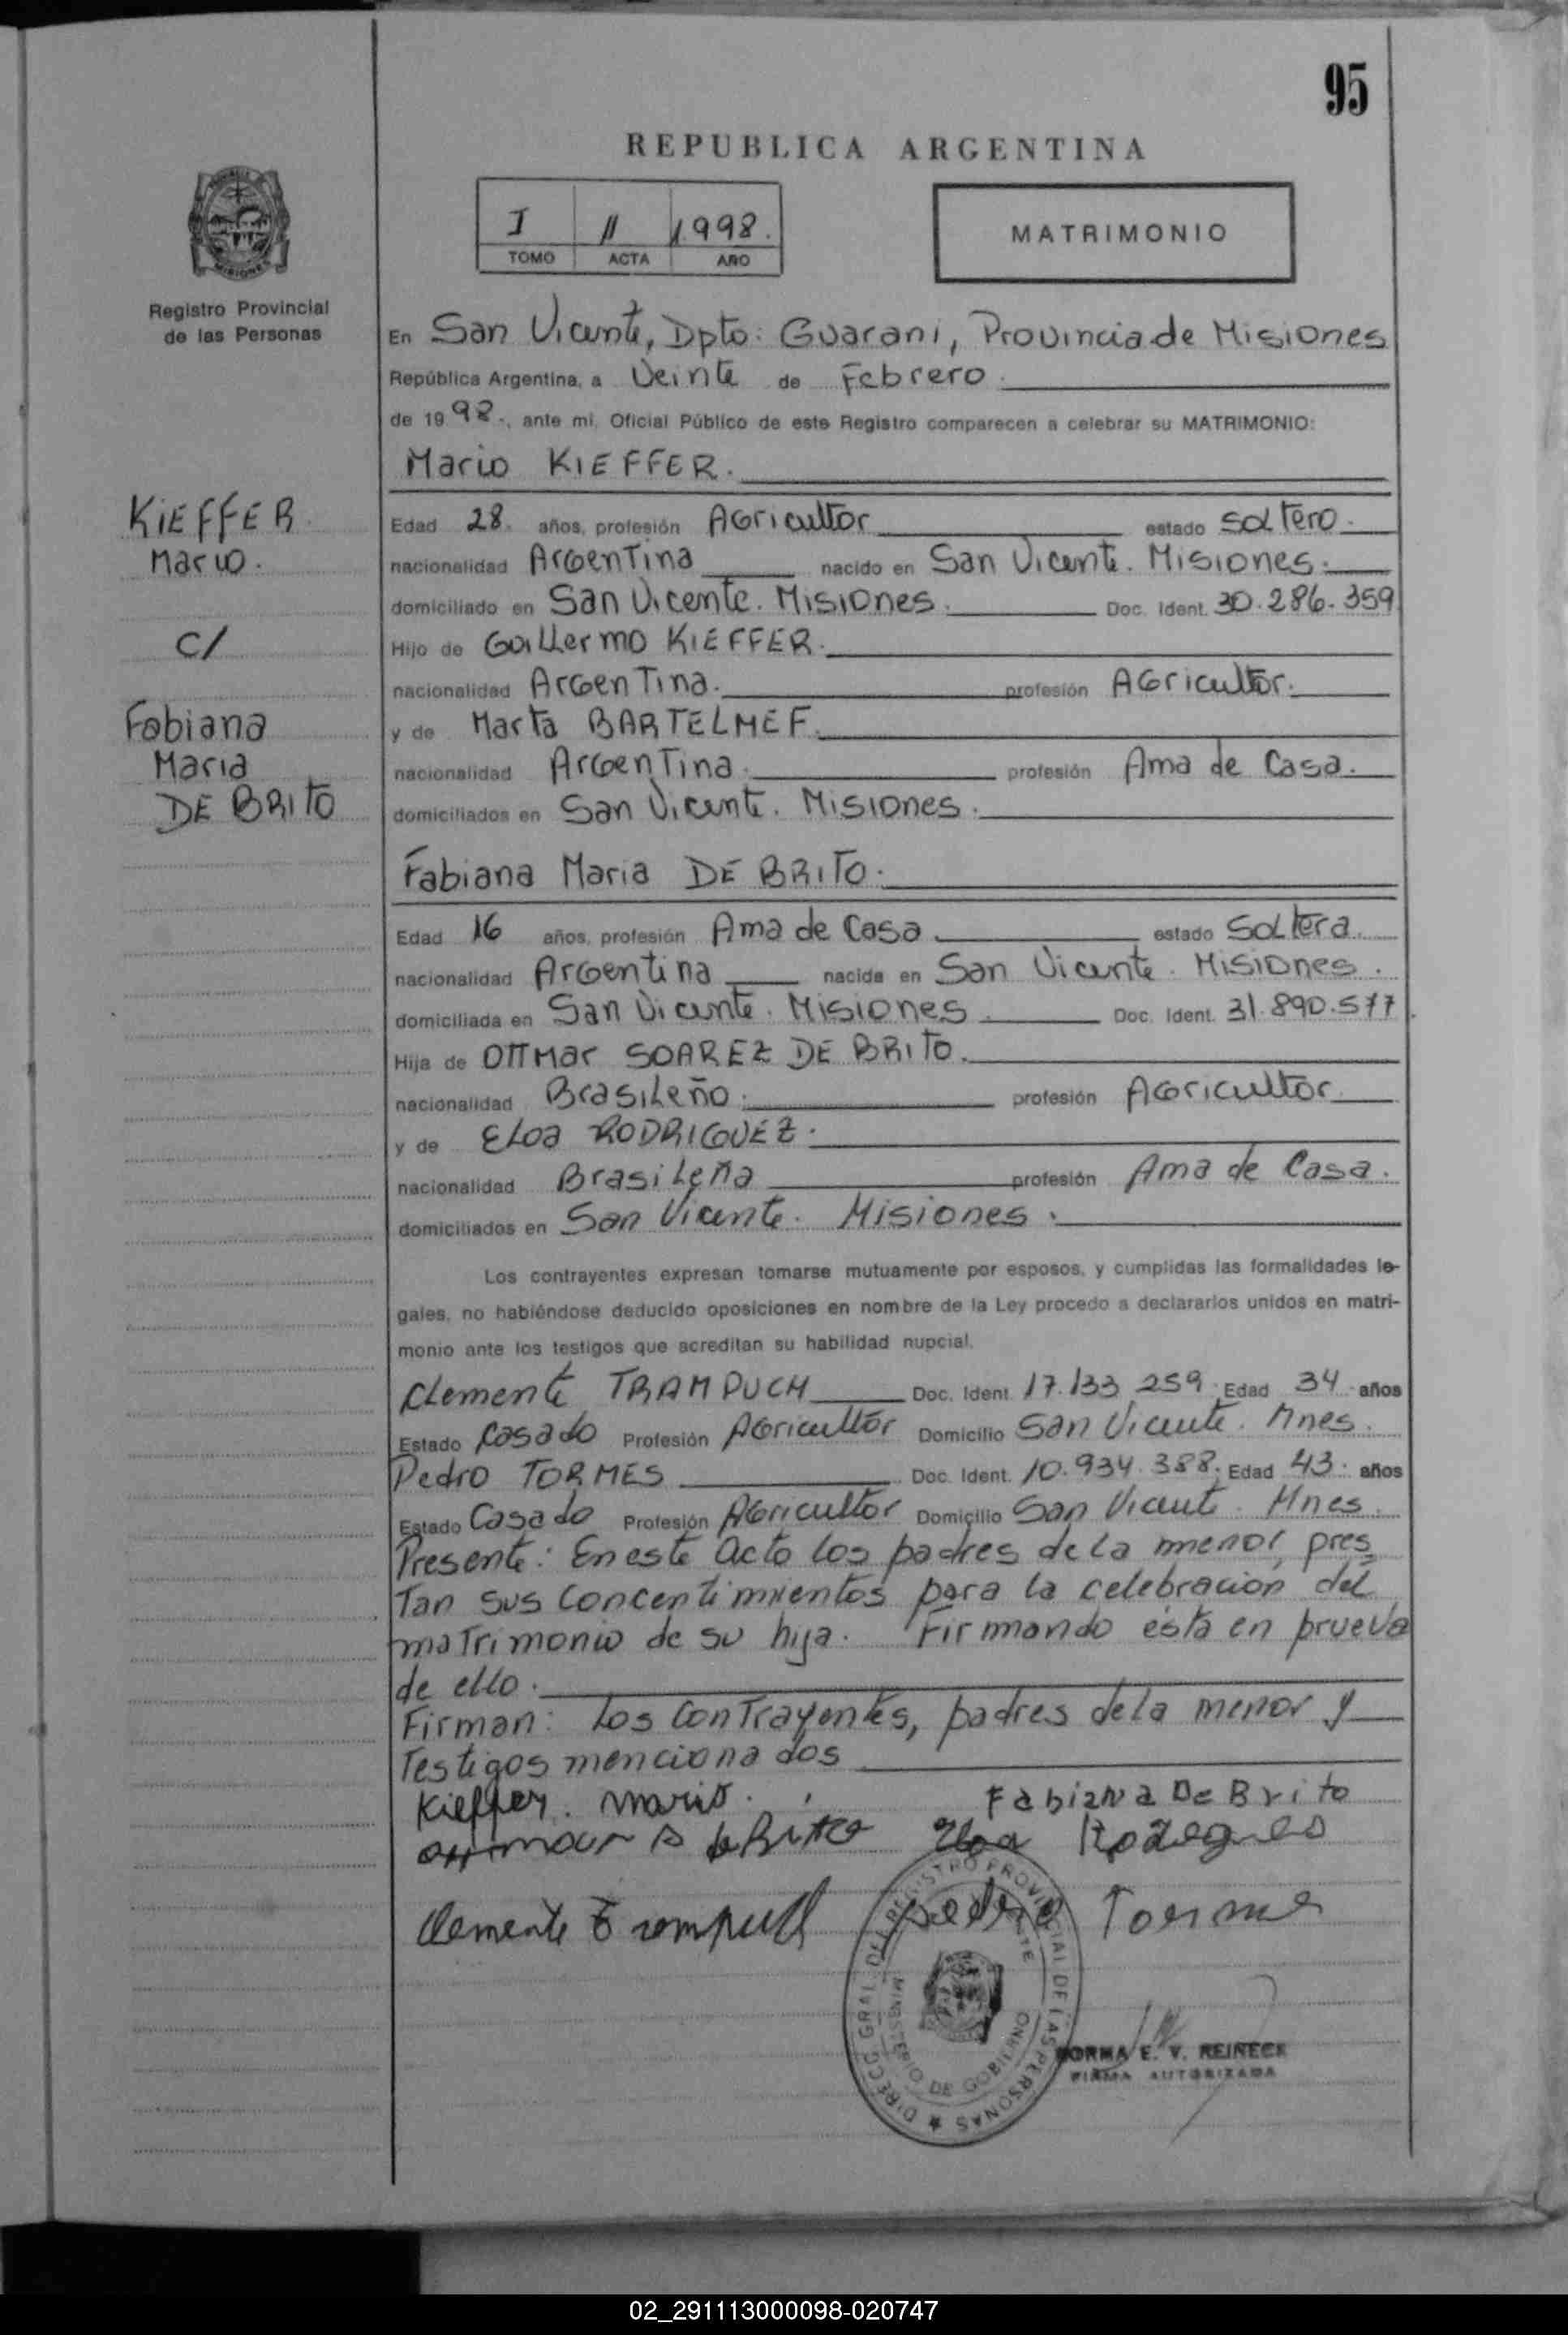 95
REPUBLICA ARGENTINA
I 11 1.998.
TOMO ACTA AÑO
MATRIMONIO
Registro Provincial
de las Personas
En San Vicente, Dpto: Guarani, Provincia de Misiones
República Argentina, a Veinte de Febrero.
de 19 98., ante mi, Oficial Público de este Registro comparecen a celebrar su MATRIMONIO:
Mario KIEFFER.
KIEFFER
Mario.
C/
Fabiana
Maria
DE BRITO
Edad 28. años, profesión Agricultor estado soltero.
nacionalidad Argentina nacido en San Vicente. Misiones.
domiciliado en San Vicente. Misiones. Doc. Ident. 30.286.359
Hijo de Guillermo KIEFFER.
nacionalidad Argentina. profesión Agricultor.
y de Marta BARTELMEF.
nacionalidad Argentina. profesión Ama de Casa.
domiciliados en San Vicente. Misiones.
Fabiana Maria DE BRITO.
Edad 16 años, profesión Ama de Casa. estado Soltera.
nacionalidad Argentina nacida en San Vicente. Misiones.
domiciliada en San Vicente. Misiones. Doc. Ident. 31.890.577.
Hija de OTTMar SOAREZ DE BRITO.
nacionalidad Brasileño. profesión Agricultor
y de Eloa RODRIGUEZ.
nacionalidad Brasileña profesión Ama de Casa.
domiciliados en San Vicente. Misiones.
Los contrayentes expresan tomarse mutuamente por esposos, y cumplidas las formalidades le-
gales, no habiéndose deducido oposiciones en nombre de la Ley procedo a declararlos unidos en matri-
monio ante los testigos que acreditan su habilidad nupcial.
Clemente TRAMPUCH Doc. Ident. 17.133.259. Edad 34 años
Estado Casado Profesión Agricultor Domicilio San Vicente. Mnes.
Pedro TORMES Doc. Ident. 10.934.388. Edad 43. años
Estado Casado Profesión Agricultor Domicilio San Vicente. Mnes.
Presente: En este acto los padres de la menor, pres
tan sus concentimientos para la celebración del
matrimonio de su hija. Firmando ésta en prueva
de ello.
Firman: Los Contrayentes, padres de la menor y
Testigos mencionados
Kieffer. Mario. Fabiana De Brito
ottmar S de Brito Eloa Rodegues
Clemente Trompuch Pedro Tormes
DIRECC. GRAL. DEL REGISTRO PROVINCIAL DE LAS PERSONAS
MINISTERIO DE GOBIERNO
NORMA E. V. REINECK
FIRMA AUTORIZADA
02_291113000098-020747